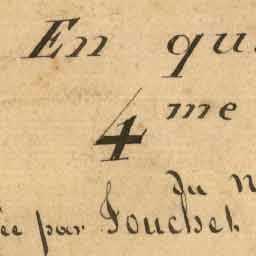 En qu
4me
Du N
ée par Fouchet